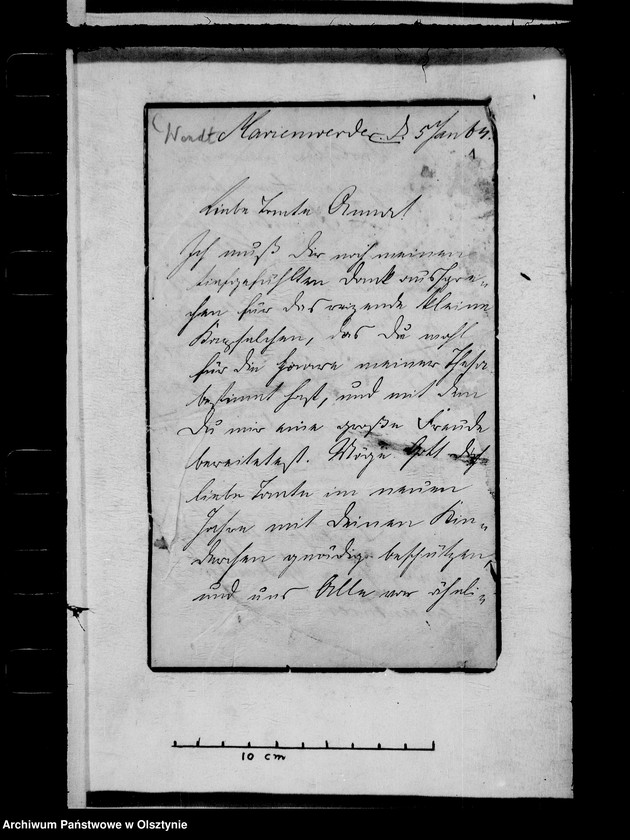 Marienwerder d. 5 Jan 64.
1
Liebe Tante Anna!
Ich muß Dir noch meinen
tiefgefühlten Dank ausspre-
chen für das reizende kleine
Kapselchen, das Du wohl
für die Haare meiner Theja
bestimmt hast, und mit dem
Du mir eine große Freude
bereitetest. Möge Gott Dich
liebe Tante im neuen
Jahre mit Deinen Kin-
derchen gnädig beschützen,
und uns Alle vor ähnli-
10 cm
Archiwum Państwowe w Olsztynie